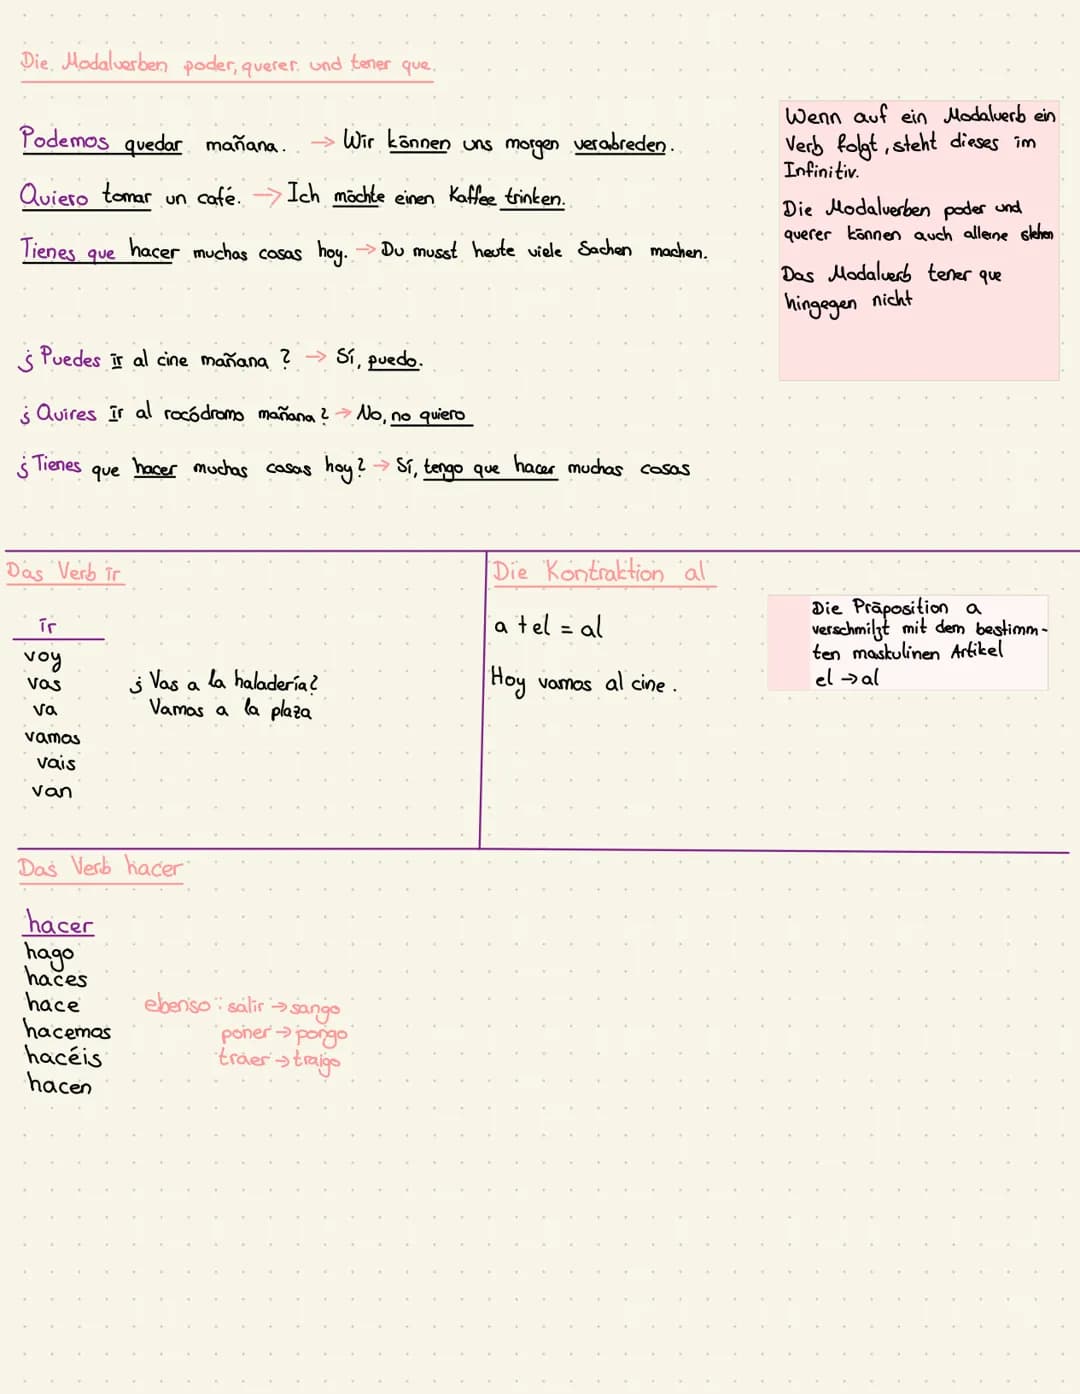 Die Modalverben poder, querer und tener que.
Podemos quedar mañana. → Wir können uns morgen verabreden.
Quiero tomar un café. → Ich möchte einen Kaffee trinken.
Tienes que hacer muchas cosas hoy. → Du musst heute viele Sachen machen.
Wenn auf ein Modalverb ein
Verb folgt, steht dieses im
Infinitiv.
Die Modalverben poder und
querer können auch alleine stehen
Das Modalverb tener que
hingegen nicht
¿Puedes ir al cine mañana? → Sí, puedo.
¿Quires ir al rocódromo mañana? → No, no quiero
¿Tienes que hacer muchas cosas hoy? → Sí, tengo que hacer muchas cosas
Das Verb ir
ir
voy
vas
va
vamos
vais
van
¿Vas a la haladería?
Vamos a la plaza
Die Kontraktion al
a + el = al
Hoy vamos al cine.
Die Präposition a
verschmilzt mit dem bestimm-
ten maskulinen Artikel
el → al
Das Verb hacer
hacer
hago
haces
hace
hacemos
hacéis
hacen
ebenso: salir → sango
poner → pongo
traer → traigo